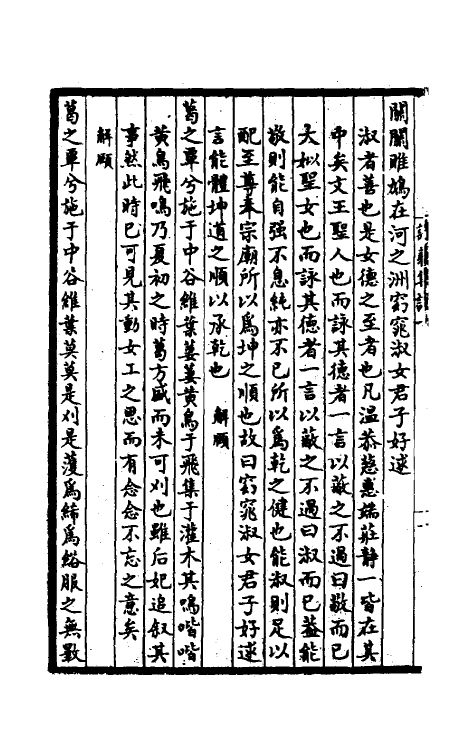 關關雎鳩在河之洲窈窕淑女君子好逑
淑者善也是女德之至者也凡溫恭慈惠端莊靜一皆在其
中矣文王聖人也而詠其德者一言以蔽之不過曰敬而已
大姒聖女也而詠其德者一言以蔽之不過曰淑而已蓋能
敬則能自强不息純亦不已所以為乾之健也能淑則足以
配至尊奉宗廟所以為坤之順也故曰窈窕淑女君子好逑
言能體坤道之順以承乾也 解頤
葛之覃兮施于中谷維葉萋萋黃鳥于飛集于灌木其鳴喈喈
黃鳥飛鳴乃夏初之時葛方盛而未可刈也雖后妃追叙其
事然此時已可見其動女工之思而有念念不忘之意矣
解頤
葛之覃兮施于中谷維葉莫莫是刈是濩為絺為綌服之無斁